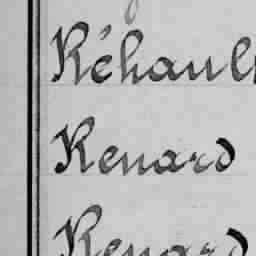 Réhault
Renard
Renard